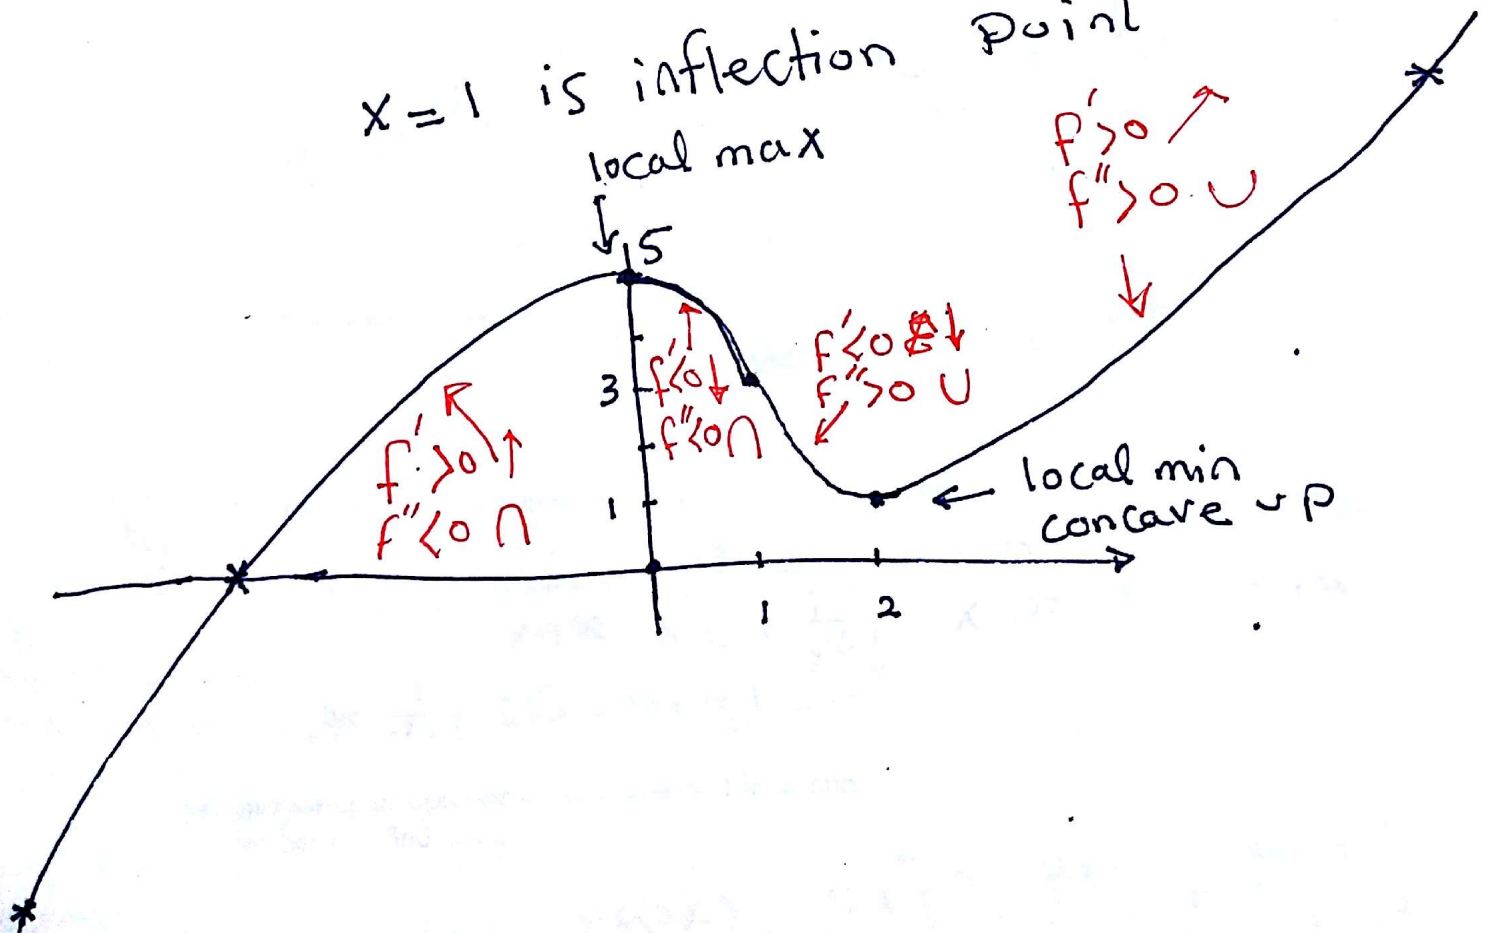 x = 1 is inflection point
local max
5
f' > 0 ↗
f'' > 0 ∪
f' < 0 ↓
f'' > 0 ∪
3
f' < 0 ↓
f'' < 0 ∩
f' > 0 ↑
f'' < 0 ∩
1
local min
concave up
1 2